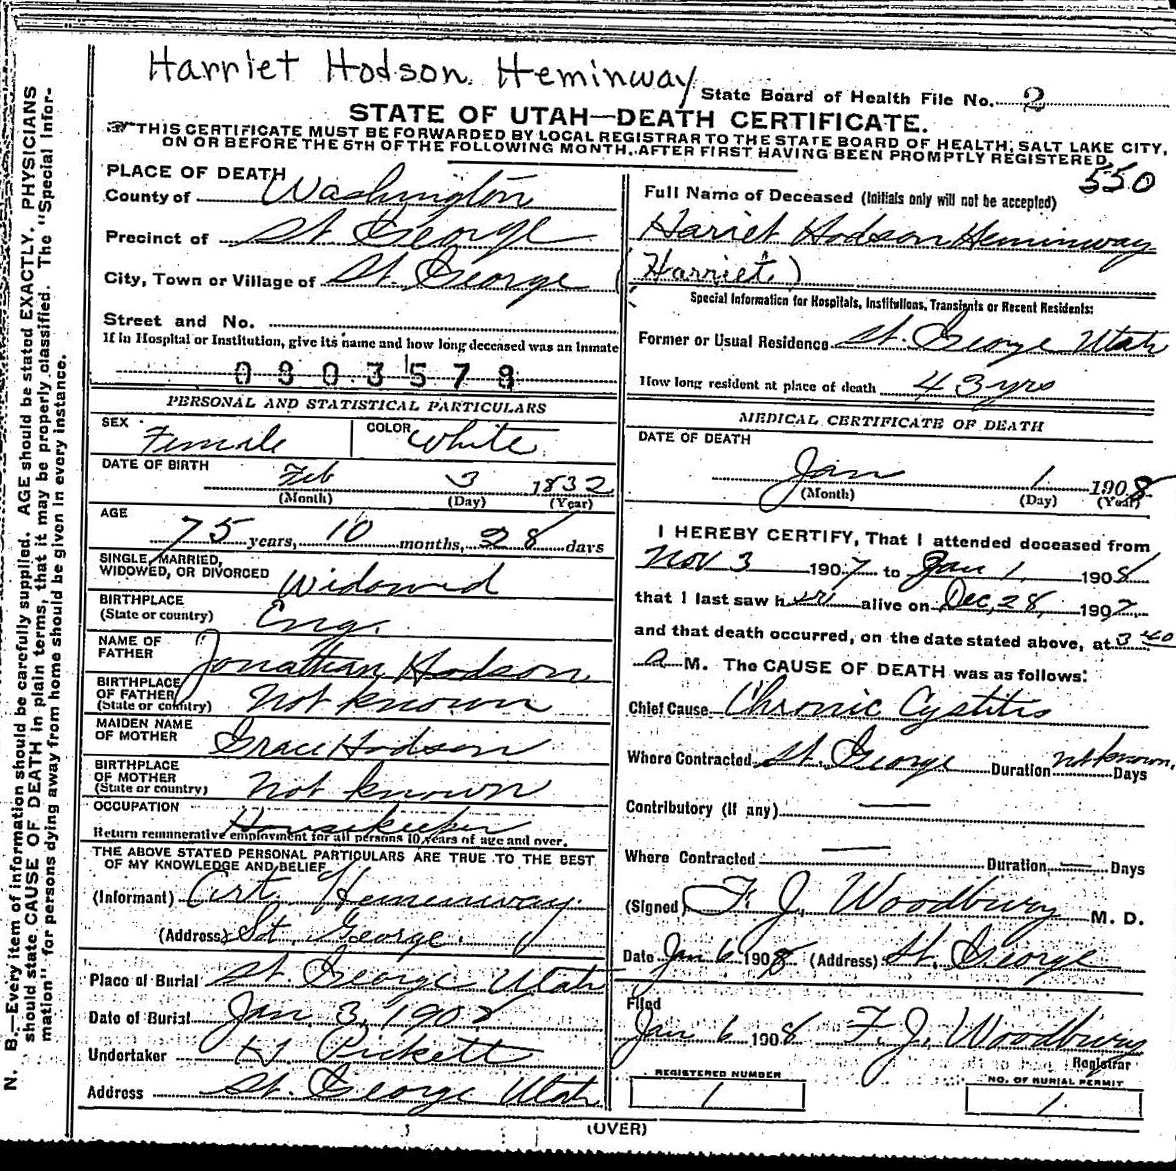 Harriet Hodson Heminway
State Board of Health File No. 2
STATE OF UTAH—DEATH CERTIFICATE.
THIS CERTIFICATE MUST BE FORWARDED BY LOCAL REGISTRAR TO THE STATE BOARD OF HEALTH, SALT LAKE CITY,
ON OR BEFORE THE 5TH OF THE FOLLOWING MONTH, AFTER FIRST HAVING BEEN PROMPTLY REGISTERED.
550
N. B.—Every item of information should be carefully supplied. AGE should be stated EXACTLY. PHYSICIANS
should state CAUSE OF DEATH in plain terms, that it may be properly classified. The "Special Infor-
mation" for persons dying away from home should be given in every instance.
PLACE OF DEATH
County of Washington
Precinct of St George
City, Town or Village of St. George
Street and No.
If in Hospital or Institution, give its name and how long deceased was an inmate
0803578
PERSONAL AND STATISTICAL PARTICULARS
SEX Female COLOR White
DATE OF BIRTH Feb 3 1832
(Month) (Day) (Year)
AGE
75 years, 10 months, 28 days
SINGLE, MARRIED,
WIDOWED, OR DIVORCED Widowed
BIRTHPLACE
(State or country) Eng.
NAME OF
FATHER Jonathan Hodson
BIRTHPLACE
OF FATHER
(State or country) Not known
MAIDEN NAME
OF MOTHER Grace Hodson
BIRTHPLACE
OF MOTHER
(State or country) Not known
OCCUPATION
Housekeeper
Return remunerative employment for all persons 10 years of age and over.
THE ABOVE STATED PERSONAL PARTICULARS ARE TRUE TO THE BEST
OF MY KNOWLEDGE AND BELIEF
(Informant) Art Hemenway.
(Address) St. George.
Place of Burial St. George Utah
Date of Burial Jan 3, 1908
Undertaker Pickett
Address St. George Utah
Full Name of Deceased (Initials only will not be accepted)
Hariet Hodson Heminway
(Harriet)
Special Information for Hospitals, Institutions, Transients or Recent Residents:
Former or Usual Residence St. George Utah
How long resident at place of death 43 yrs
MEDICAL CERTIFICATE OF DEATH
DATE OF DEATH
Jan 1 1908
(Month) (Day) (Year)
I HEREBY CERTIFY, That I attended deceased from
Nov 3 1907 to Jan 1, 1908
that I last saw her alive on Dec, 28, 1907
and that death occurred, on the date stated above, at 3 40
a M. The CAUSE OF DEATH was as follows:
Chief Cause Chronic Cystitis
Where Contracted St. George Duration not known. Days
Contributory (if any)
Where Contracted Duration Days
(Signed) F. J. Woodbury M. D.
Date Jan 6 1908 (Address) St. George
Filed
Jan 6 1908 F. J. Woodbury
Registrar
REGISTERED NUMBER
1
NO. OF BURIAL PERMIT
1
(OVER)